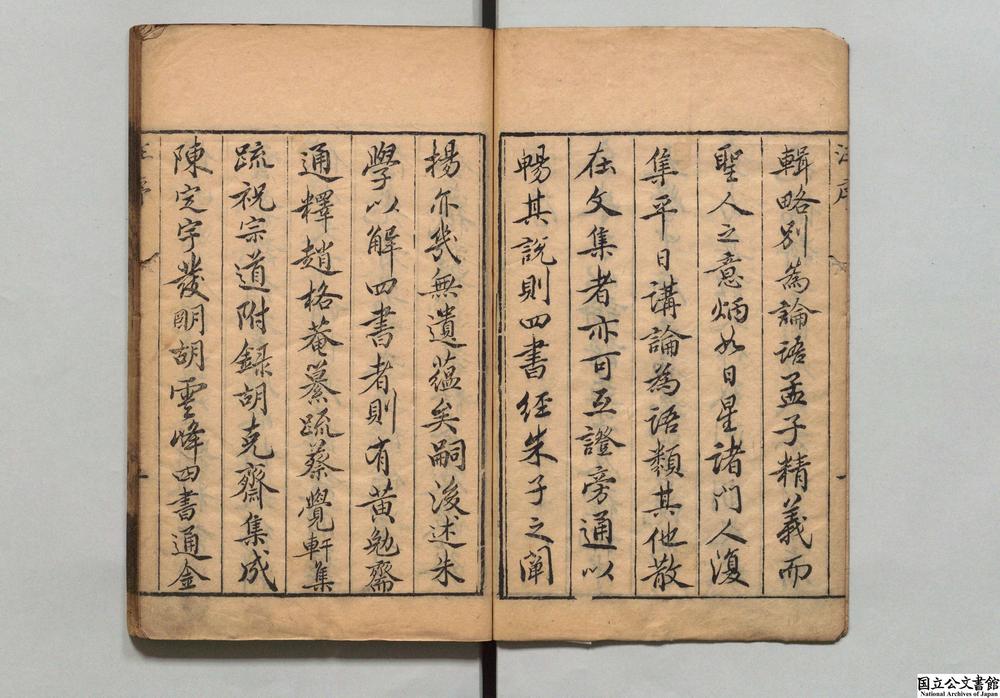 輯略別為論語孟子精義而
聖人之意炳如日星諸門人復
集平日講論為語類其他散
在文集者亦可互證旁通以
暢其說則四書經朱子之闡
揚亦幾無遺蘊矣嗣後述朱
學以解四書者則有黃勉齋
通釋趙格菴纂疏蔡覺軒集
疏祝宗道附録胡克齋集成
陳定宇發明胡雲峰四書通金
国立公文書館
National Archives of Japan